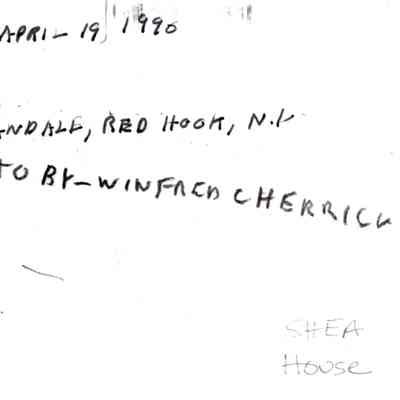 APRIL 19, 1990
ANDALE, RED HOOK, N.Y
TO BY-WINFRED CHERRICK
SHEA
House